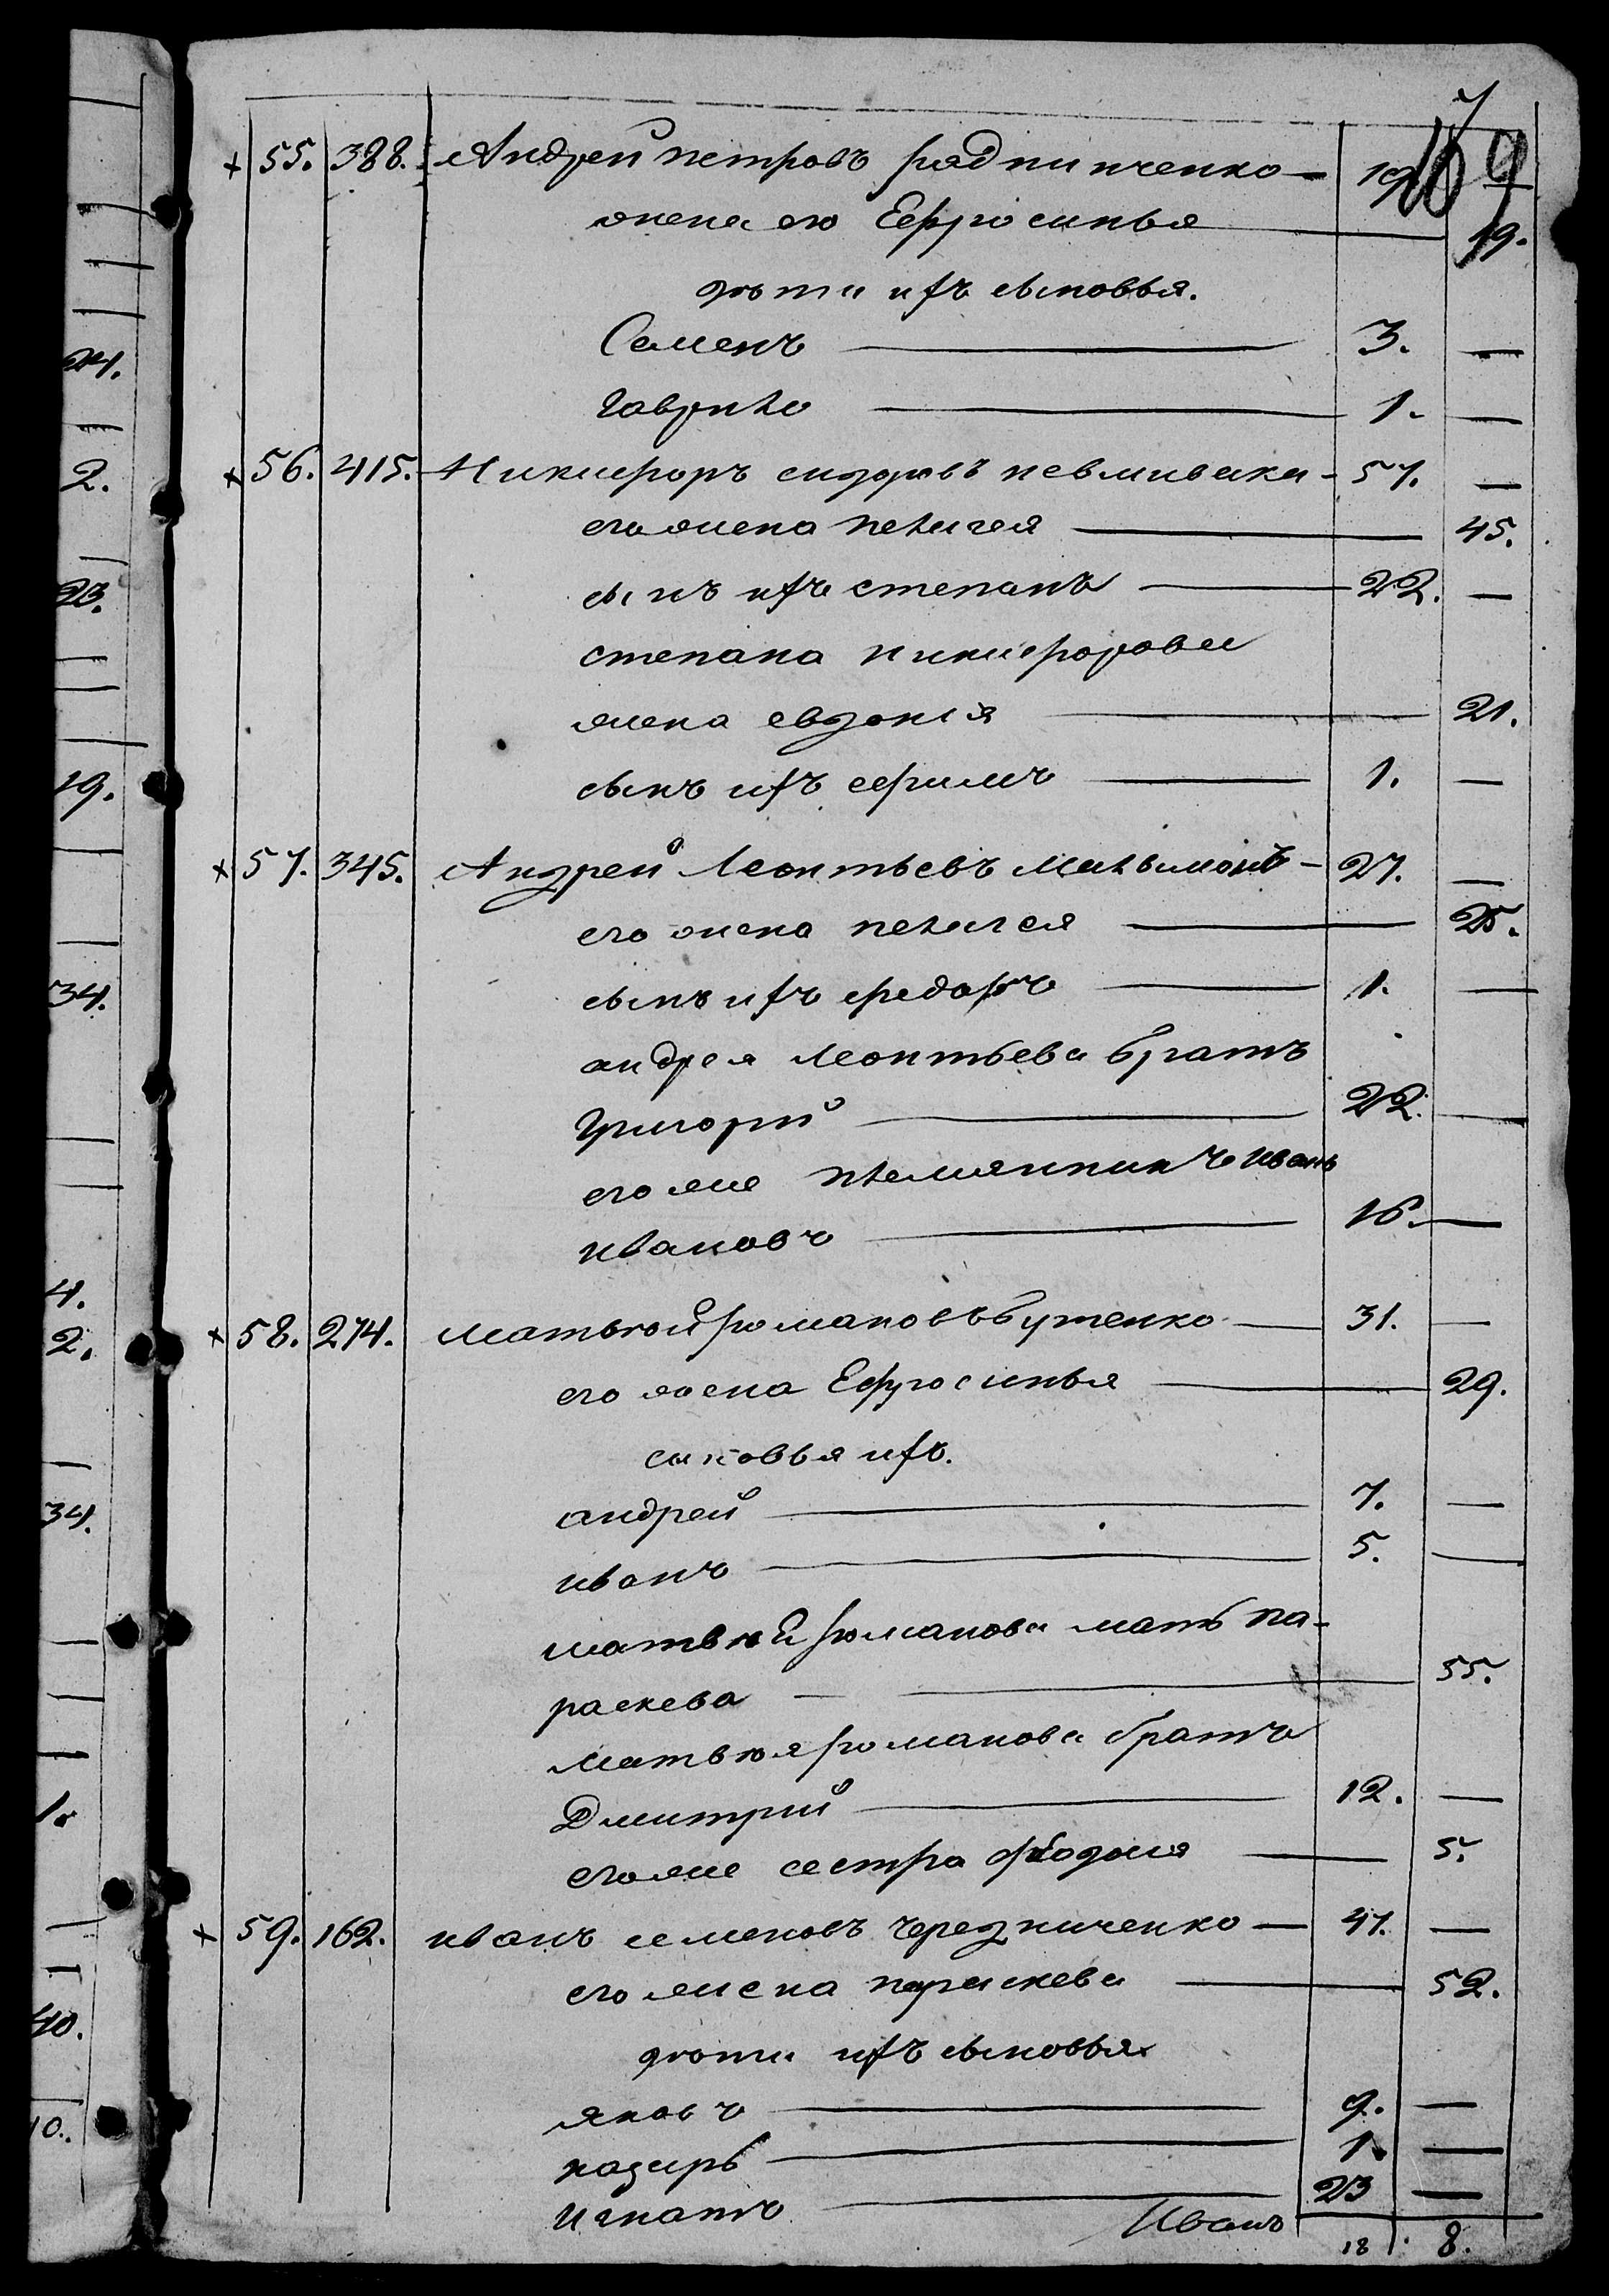 9
+ 55. 388. Андрей петровъ — 19 —
жена его Ефросинья — 19.
дѣти ихъ сыновья.
Семенъ — 3. —
гаврило — 1. —
+ 56. 415. Никифоръ сидоровъ — 57. —
его жена пелагея — 45.
сынъ ихъ степанъ — 22. —
степана никифорова
жена евдокія — 21.
сынъ ихъ ефимъ — 1. —
+ 57. 345. Андрей Леонтьевъ — 27. —
его жена пелагея — 25.
сынъ ихъ федоръ — 1. —
андрея Леонтьева братъ
Григорій — 22. —
его же племянникъ иванъ
ивановъ — 16. —
+ 58. 274. матвѣй романовъ бутенко — 31. —
его жена Ефросинья — 29.
сыновья ихъ.
андрей — 7. —
иванъ — 5. —
матвѣй романова мать па-
раскева — 55.
матвѣя романова братъ
Дмитрій — 12. —
его же сестра — 5.
+ 59. 162. иванъ семеновъ чередниченко — 47. —
его жена параскева — 52.
дѣти ихъ сыновья
яковъ — 9. —
назаръ — 1. —
игнатъ — 23 —
Иванъ
18 8.
24.
2.
23.
19.
34.
4.
2.
34.
1.
40.
10.